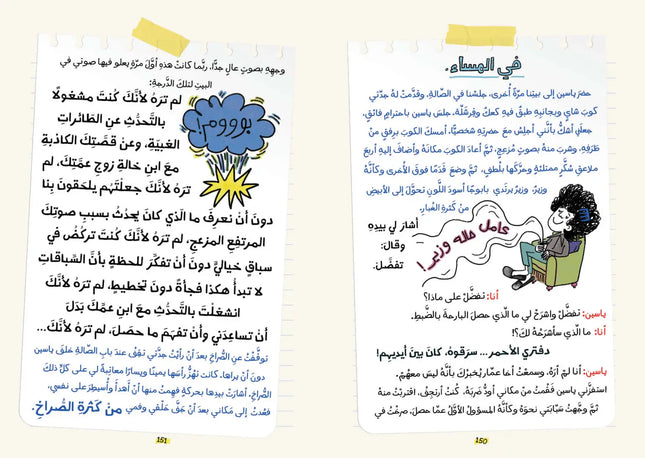 في المساء.
حضرَ ياسين إلى بيتِنا مرّةً أُخرى، جلسْنا في الصّالةِ، وقدَّمتْ لهُ جدّتي
كوبَ شايٍ وبجانبِهِ طبقٌ فيهِ كعكٌ وقِرشَلّة، جلسَ ياسين باحترامٍ فائقٍ،
جعلَني أشكُّ بأنّني أجلِسُ معَ حضرتِهِ شخصيًّا. أمسكَ الكوبَ برِفقٍ منْ
طَرَفِهِ، وشربَ منهُ بصوتٍ مُزعِجٍ، ثمَّ أعادَ الكوبَ مكانَهُ وأضافَ إليهِ أربعَ
ملاعقِ سُكَّرٍ ممتلئةٍ وحرَّكَها بلُطفٍ، ثمَّ وضعَ قدمًا فوقَ الأُخرى وكأنَّهُ
وزيرٌ، وزيرٌ يرتدي بابوجًا أسودَ اللَّونِ تحوَّلَ إلى الأبيضِ
منْ كثرةِ الغُبارِ.
عامل حاله وزير!
أشارَ لي بيدِهِ
وقالَ:
تفضَّل.
أنا: تفضَّلْ على ماذا؟
ياسين: تفضَّل واشرَحْ لي ما الّذي حصلَ البارحةَ بالضَّبطِ.
أنا: ما الّذي سأشرَحُهُ لكَ؟!
دفتري الأحمر... سرَقوهُ، كانَ بينَ أيديهم!
ياسين: أنا لمْ أرَهُ، وسمعْتُ أخا عمّار يُخبرُكَ بأنَّهُ ليسَ معهُمْ.
استفزَّني ياسين فقُمتُ منْ مكاني أودُّ ضَربَهُ. كُنتُ أرتجِفُ، اقتربْتُ منهُ
ثمَّ وجَّهتُ سبّابَتي نحوَهُ وكأنَّهُ المسؤولُ الأوَّلُ عمّا حصلَ، صرخْتُ في
150
وجهِهِ بصوتٍ عالٍ جدًّا، ربَّما كانتْ هذهِ أوَّلَ مرّةٍ يعلو فيها صوتي في
البيتِ لتلكَ الدَّرجةِ:
بوووم!
لم ترَهُ لأنَّكَ كُنتَ مشغولًا
بالتَّحدُّثِ عنِ الطّائراتِ
الغبيّةِ، وعنْ قصّتِكَ الكاذبةِ
معَ ابنِ خالةِ زوجِ عمَّتِكَ، لم
ترَهُ لأنَّكَ جعلْتَهُم يلحَقونَ بِنا
دونَ أنْ نعرِفَ ما الّذي كانَ يحدُثُ بسببِ صوتِكَ
المرتفِعِ المزعِجِ، لم ترَهُ لأنَّكَ كُنتَ تركُضُ في
سباقٍ خياليٍّ دونَ أنْ تفكّرَ للحظةٍ بأنَّ السِّباقاتِ
لا تبدأُ هكذا فجأةً دونَ تخطيطٍ، لم ترَهُ لأنَّكَ
انشغلْتَ بالتَّحدُّثِ معَ ابنِ عمِّكَ بَدَلَ
أنْ تساعِدَني وأنْ تفهَمَ ما حصَلَ، لم ترَهُ لأنَّكَ...
توقَّفْتُ عنِ الصُّراخِ بعدَ أنْ رأيْتُ جدَّتي تقِفُ عندَ بابِ الصّالةِ خلفَ ياسين
دونَ أنْ يراها، كانتْ تهُزُّ رأسَها يمينًا ويسارًا معاتِبةً لي على كلِّ ذلكَ
الصُّراخِ. أشارَتْ بيدِها بحركةٍ فهِمتُ منها أنْ أهدأَ وأُسيطِرَ على نفسي،
فعُدتُ إلى مَكاني بعدَ أنْ جَفَّ حَلْقي وفمي منْ كَثرةِ الصُّراخِ.
151